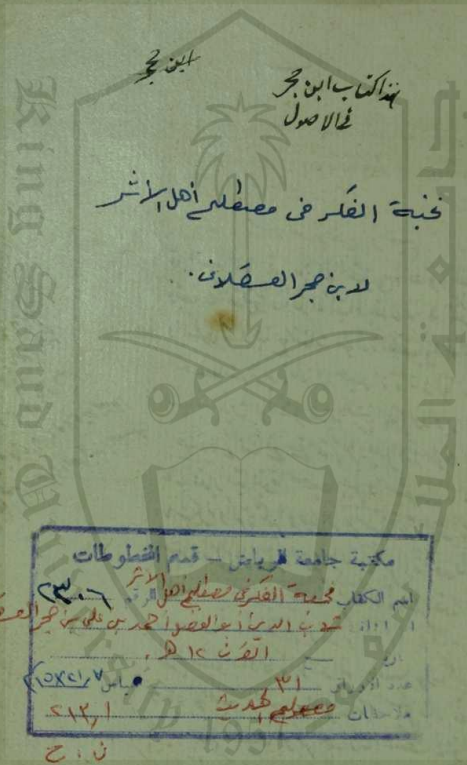 ابن حجر
هذا كتاب ابن حجر
في الاصول
نخبة الفكر في مصطلح أهل الأثر
لابن حجر العسقلاني.
King Saud
مكتبة جامعة الرياض - قسم المخطوطات
اسم الكتاب نخبة الفكر في مصطلح أهل الأثر الرقم ٢٣٠٦
شهاب الدين أبو الفضل أحمد بن علي بن حجر
القرن ١٢ هـ.
عدد الأوراق ٣١
ملاحظات مصطلح الحديث ٢١٣٫١
1957